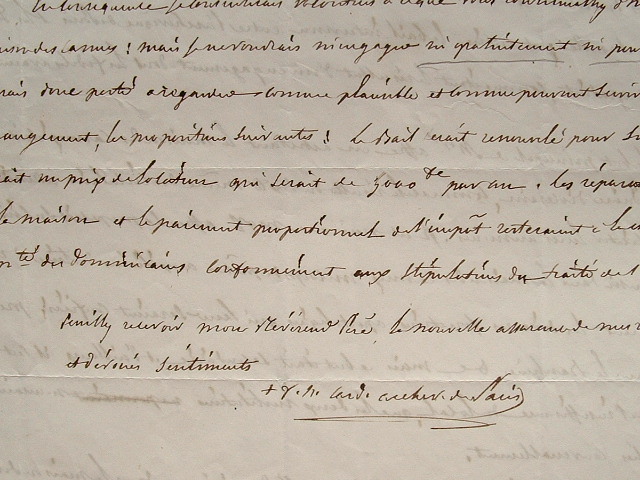 je consentirais volontiers à ce que vous
maison des carmes ; mais je ne voudrais m'engager ni gratuitement ni pour
rais donc porté a regarder comme plausible et comme pouvant servir
angement, les propositions suivantes : Le Bail serait renouvelé pour
ait un prix de location qui serait de 5000 par an. les répara
la maison et le paiement proportionnel de l'impôt resteraient à la
des Dominicains conformément aux stipulations du traité de l
Veuillez recevoir mon Révérend Père, la nouvelle assurance de mes
et dévoués sentiments
+ card. archev. de Paris